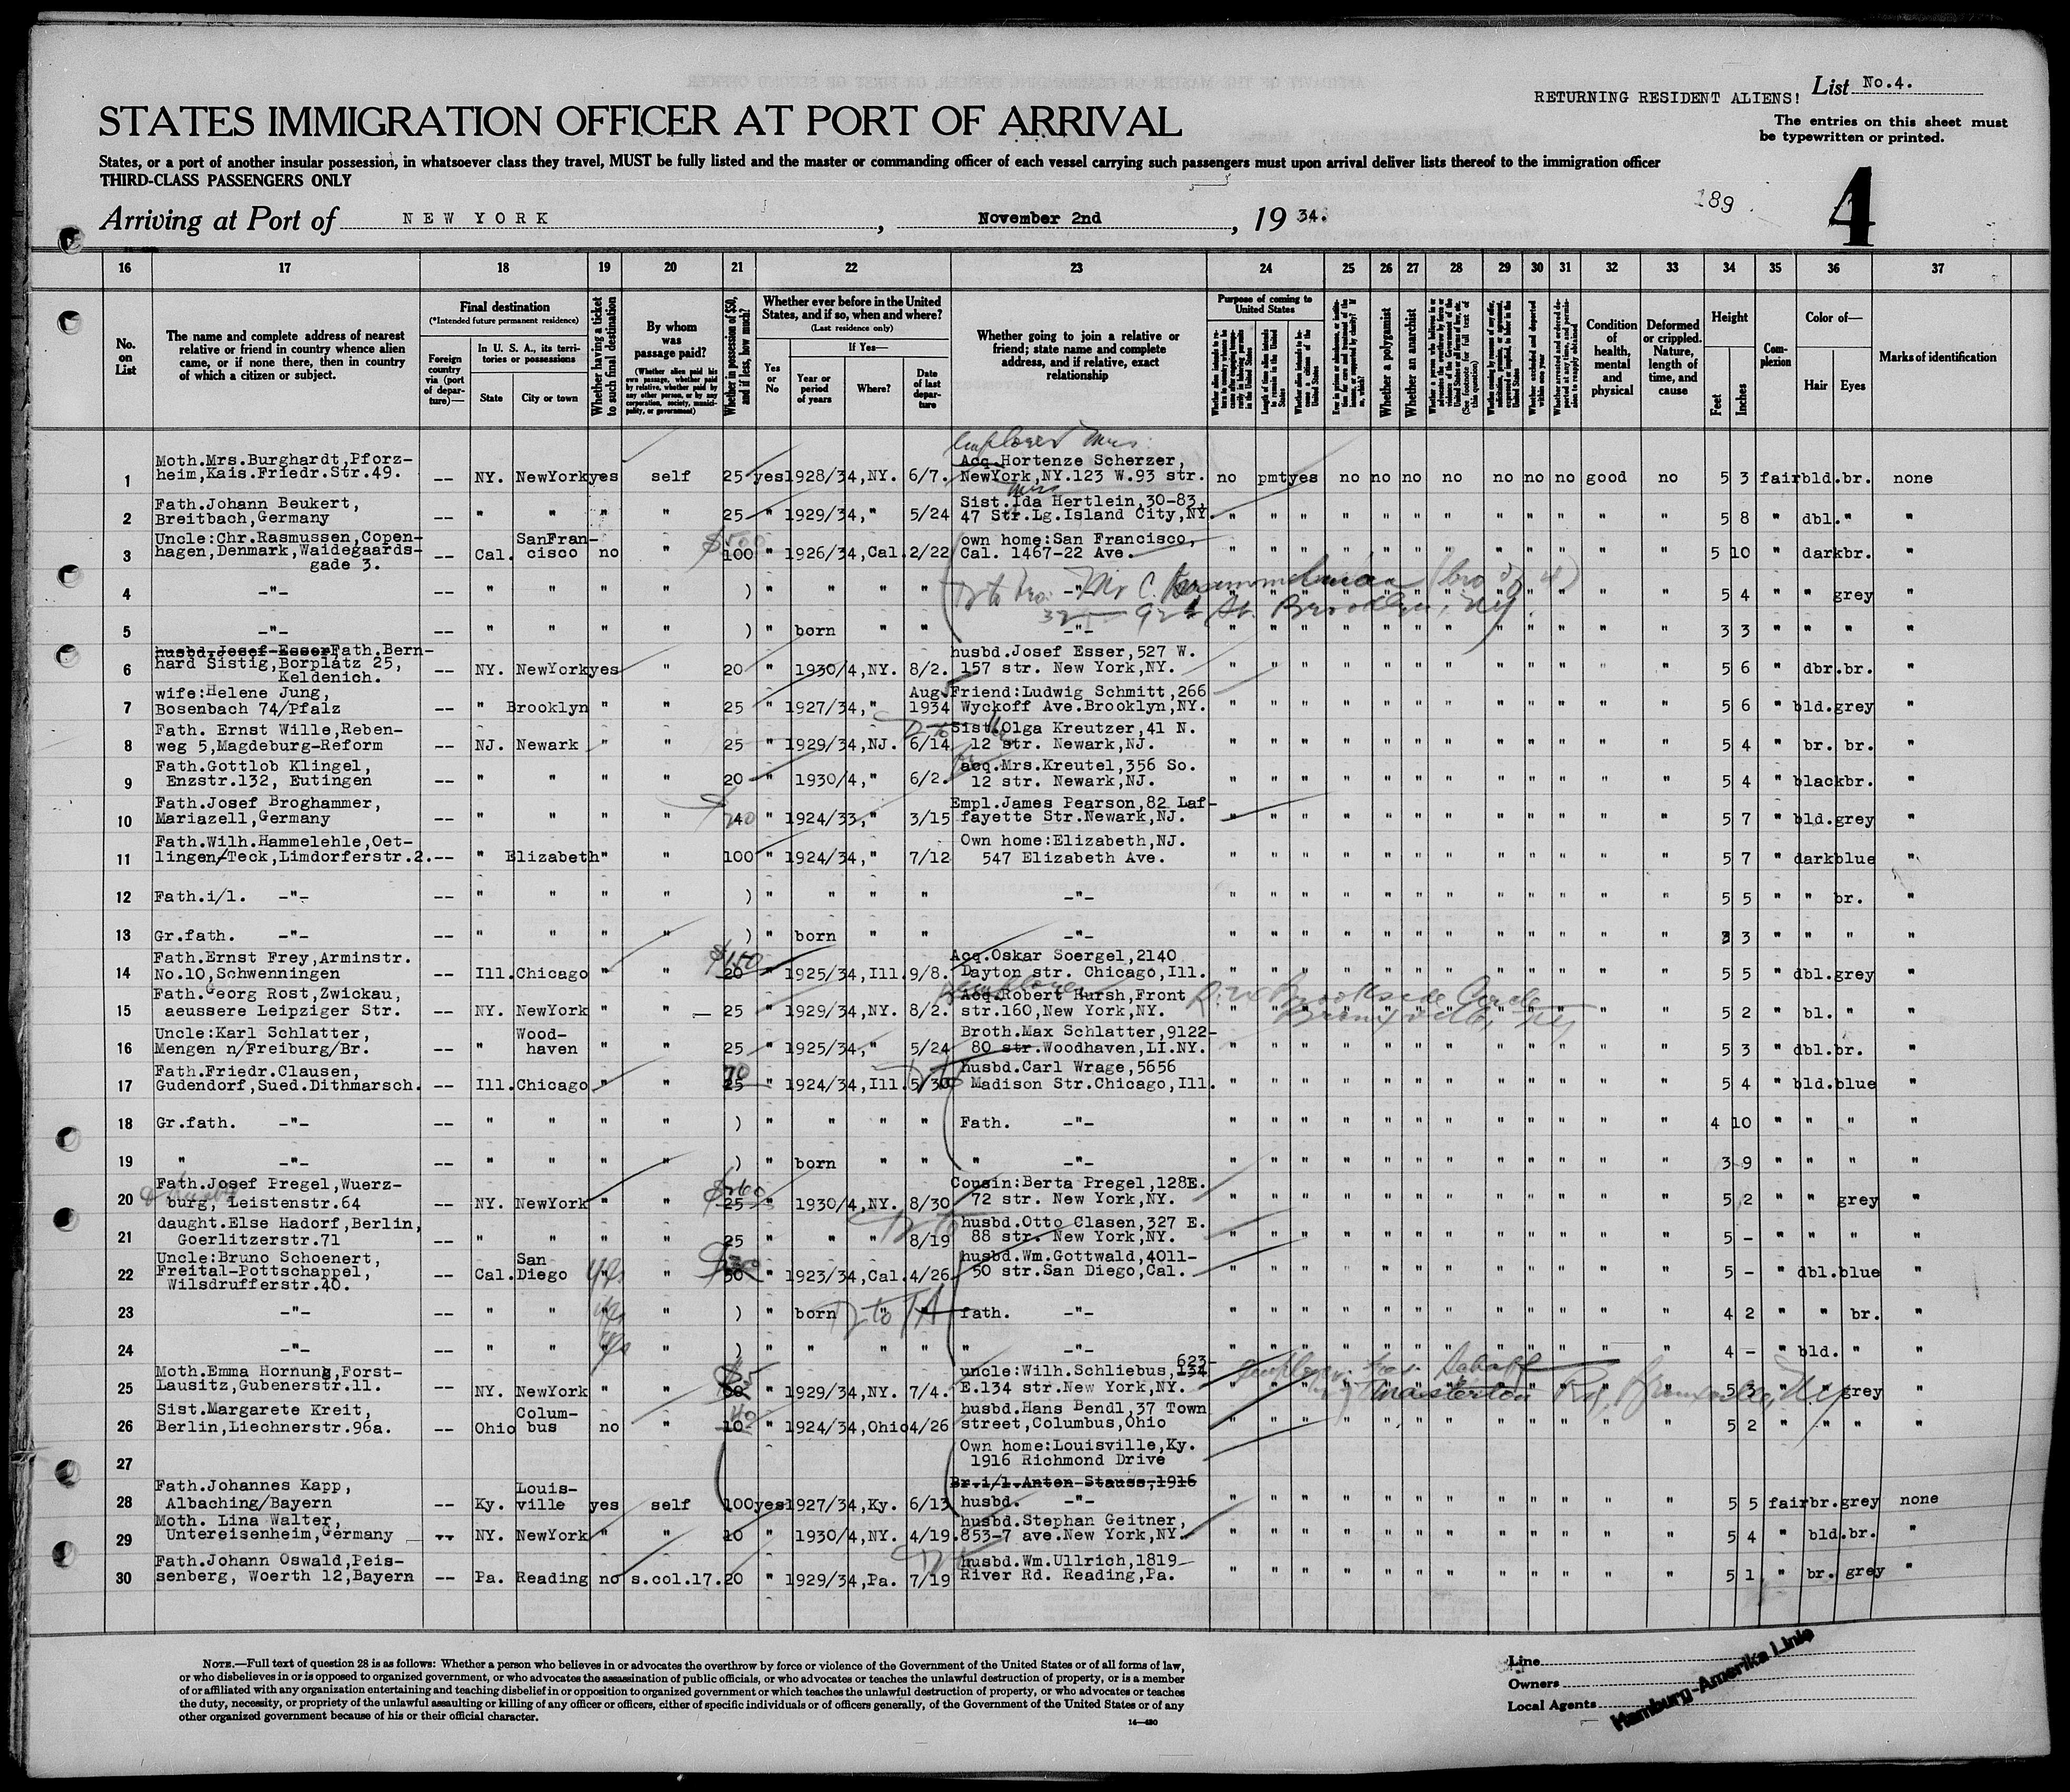 RETURNING RESIDENT ALIENS! List No.4.
STATES IMMIGRATION OFFICER AT PORT OF ARRIVAL
The entries on this sheet must
be typewritten or printed.
States, or a port of another insular possession, in whatsoever class they travel, MUST be fully listed and the master or commanding officer of each vessel carrying such passengers must upon arrival deliver lists thereof to the immigration officer
THIRD-CLASS PASSENGERS ONLY
189 4
Arriving at Port of NEW YORK, November 2nd, 19 34.
16 17 18 19 20 21 22 23 24 25 26 27 28 29 30 31 32 33 34 35 36 37
No. on List
The name and complete address of nearest relative or friend in country whence alien came, or if none there, then in country of which a citizen or subject.
Final destination
(*Intended future permanent residence)
Foreign country via (port of departure)—
In U. S. A., its territories or possessions
State City or town
Whether having a ticket to such final destination
By whom was passage paid?
(Whether alien paid his own passage, whether paid by relative, whether paid by any other person, or by any corporation, society, municipality, or government)
Whether in possession of $50, and if less, how much?
Whether ever before in the United States, and if so, when and where?
(Last residence only)
Yes or No
If Yes—
Year or period of years Where? Date of last departure
Whether going to join a relative or friend; state name and complete address, and if relative, exact relationship
Purpose of coming to United States
Whether a polygamist
Whether an anarchist
Condition of health, mental and physical
Deformed or crippled. Nature, length of time, and cause
Height
Feet Inches
Complexion
Color of—
Hair Eyes
Marks of identification
employer Mrs.
1 Moth.Mrs.Burghardt,Pforz-heim,Kais.Friedr.Str.49. -- NY. NewYork yes self 25 yes 1928/34,NY. 6/7. Acq.Hortenze Scherzer, NewYork,NY.123 W.93 str. no pmt yes no no no no no no no good no 5 3 fair bld. br. none
2 Fath.Johann Beukert, Breitbach,Germany -- " " " " 25 " 1929/34," 5/24 Sist.Ida Hertlein,30-83, 47 Str.Lg.Island City,NY. " " " " " " " " " " " " 5 8 " dbl. " "
3 Uncle:Chr.Rasmussen,Copen-hagen,Denmark,Waidegaards-gade 3. -- Cal. SanFran-cisco no " 100 " 1926/34,Cal. 2/22 own home:San Francisco, Cal. 1467-22 Ave. " " " " " " " " " " " " 5 10 " dark br. "
4 -"- -- " " " " ) " " " " -"- " " " " " " " " " " " " 5 4 " " grey "
5 -"- -- " " " " ) " born " " -"- " " " " " " " " " " " " 3 3 " " " "
6 husbd.Josef Esser Fath.Bern-hard Sistig,Borplatz 25, Keldenich. -- NY. NewYork yes " 20 " 1930/4,NY. 8/2. husbd.Josef Esser,527 W. 157 str. New York,NY. " " " " " " " " " " " " 5 6 " dbr. br. "
7 wife:Helene Jung, Bosenbach 74/Pfalz -- " Brooklyn " " 25 " 1927/34," Aug. 1934 Friend:Ludwig Schmitt,266 Wyckoff Ave.Brooklyn,NY. " " " " " " " " " " " " 5 6 " bld. grey "
8 Fath. Ernst Wille,Reben-weg 5,Magdeburg-Reform -- NJ. Newark " " 25 " 1929/34,NJ. 6/14 Sist.Olga Kreutzer,41 N. 12 str. Newark,NJ. " " " " " " " " " " " " 5 4 " br. br. "
9 Fath.Gottlob Klingel, Enzstr.132, Eutingen -- " " " " 20 " 1930/4," 6/2. acq.Mrs.Kreutel,356 So. 12 str. Newark,NJ. " " " " " " " " " " " " 5 4 " black br. "
10 Fath.Josef Broghammer, Mariazell,Germany -- " " " " 40 " 1924/33," 3/15 Empl.James Pearson,82 Laf-fayette Str.Newark,NJ. " " " " " " " " " " " " 5 7 " bld. grey "
11 Fath.Wilh.Hammelehle,Oet-lingen/Teck,Limdorferstr.2. -- " Elizabeth " " 100 " 1924/34," 7/12 Own home:Elizabeth,NJ. 547 Elizabeth Ave. " " " " " " " " " " " " 5 7 " dark blue "
12 Fath.i/l. -"- -- " " " " ) " " " " -"- " " " " " " " " " " " " 5 5 " " br. "
13 Gr.fath. -"- -- " " " " ) " born " " -"- " " " " " " " " " " " " 3 3 " " " "
14 Fath.Ernst Frey,Arminstr. No.10,Schwenningen -- Ill. Chicago " " $150 20 " 1925/34,Ill. 9/8. Acq.Oskar Soergel,2140 Dayton str. Chicago,Ill. " " " " " " " " " " " " 5 5 " dbl. grey "
15 Fath.Georg Rost,Zwickau, aeussere Leipziger Str. -- NY. NewYork " " 25 " 1929/34,NY. 8/2. employer Acq.Robert Hursh,Front str.160,New York,NY. " " " " " " " " " " " " 5 2 " bl. " "
16 Uncle:Karl Schlatter, Mengen n/Freiburg/Br. -- " Wood-haven " " 25 " 1925/34," 5/24 Broth.Max Schlatter,9122-80 str.Woodhaven,LI.NY. " " " " " " " " " " " " 5 3 " dbl. br. "
17 Fath.Friedr.Clausen, Gudendorf,Sued.Dithmarsch. -- Ill. Chicago " " 70 25 " 1924/34,Ill. 5/30 husbd.Carl Wrage,5656 Madison Str.Chicago,Ill. " " " " " " " " " " " " 5 4 " bld. blue "
18 Gr.fath. -"- -- " " " " ) " " " " Fath. -"- " " " " " " " " " " " " 4 10 " " " "
19 " -"- -- " " " " ) " born " " " -"- " " " " " " " " " " " " 3 9 " " " "
20 Fath.Josef Pregel,Wuerz-burg, Leistenstr.64 -- NY. NewYork " " 25 " 1930/4,NY. 8/30 Cousin:Berta Pregel,128E. 72 str. New York,NY. " " " " " " " " " " " " 5 2 " " grey "
21 daught.Else Hadorf,Berlin, Goerlitzerstr.71 -- " " " " 25 " " " 8/19 husbd.Otto Clasen,327 E. 88 str. New York,NY. " " " " " " " " " " " " 5 - " " " "
22 Uncle:Bruno Schoenert, Freital-Pottschappel, Wilsdrufferstr.40. -- Cal. San Diego yes " 50 " 1923/34,Cal. 4/26 husbd.Wm.Gottwald,4011-50 str.San Diego,Cal. " " " " " " " " " " " " 5 - " dbl. blue "
23 -"- -- " " yes " ) " born " " fath. -"- " " " " " " " " " " " " 4 2 " " br. "
24 -"- -- " " yes " ) " " " " " -"- " " " " " " " " " " " " 4 - " bld. " "
25 Moth.Emma Hornung,Forst-Lausitz,Gubenerstr.11. -- NY. NewYork " " " 1929/34,NY. 7/4. uncle:Wilh.Schliebus,623-134 E.134 str.New York,NY. " " " " " " " " " " " " 5 " " grey
26 Sist.Margarete Kreit, Berlin,Liechnerstr.96a. -- Ohio Colum-bus no " 10 " 1924/34,Ohio 4/26 husbd.Hans Bendl,37 Town street,Columbus,Ohio " " " " " " " " " " " " 5 2 " " " "
27 Own home:Louisville,Ky. 1916 Richmond Drive
Br.i/l.Anton Stauss,1916
28 Fath.Johannes Kapp, Albaching/Bayern -- Ky. Louis-ville yes self 100 yes 1927/34,Ky. 6/13 husbd. -"- " " " " " " " " " " " " 5 5 fair br. grey none
29 Moth. Lina Walter, Untereisenheim,Germany -- NY. NewYork " " 10 " 1930/4,NY. 4/19. husbd.Stephan Geitner, 853-7 ave.New York,NY. " " " " " " " " " " " " 5 4 " bld. br. "
30 Fath.Johann Oswald,Peis-senberg, Woerth 12,Bayern -- Pa. Reading no s.col.17. 20 " 1929/34,Pa. 7/19 husbd.Wm.Ullrich,1819 River Rd. Reading,Pa. " " " " " " " " " " " " 5 1 " br. grey "
NOTE.—Full text of question 28 is as follows: Whether a person who believes in or advocates the overthrow by force or violence of the Government of the United States or of all forms of law,
or who disbelieves in or is opposed to organized government, or who advocates the assassination of public officials, or who advocates or teaches the unlawful destruction of property, or is a member
of or affiliated with any organization entertaining and teaching disbelief in or opposition to organized government or which teaches the unlawful destruction of property, or who advocates or teaches
the duty, necessity, or propriety of the unlawful assaulting or killing of any officer or officers, either of specific individuals or of officers generally, of the Government of the United States or of any
other organized government because of his or their official character.
14—430
Line
Owners
Local Agents
Hamburg-Amerika Linie